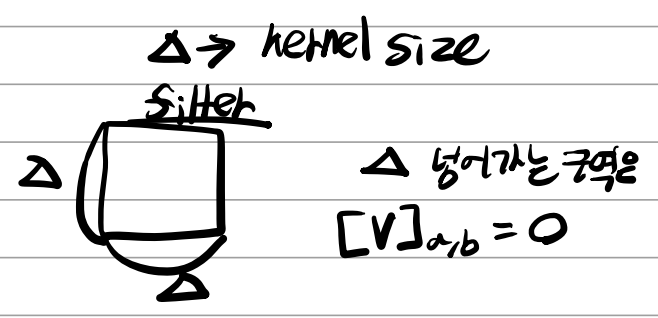 Δ → kernel size
filter
Δ
Δ 넘어가는 구역은
[V]a,b = 0
Δ